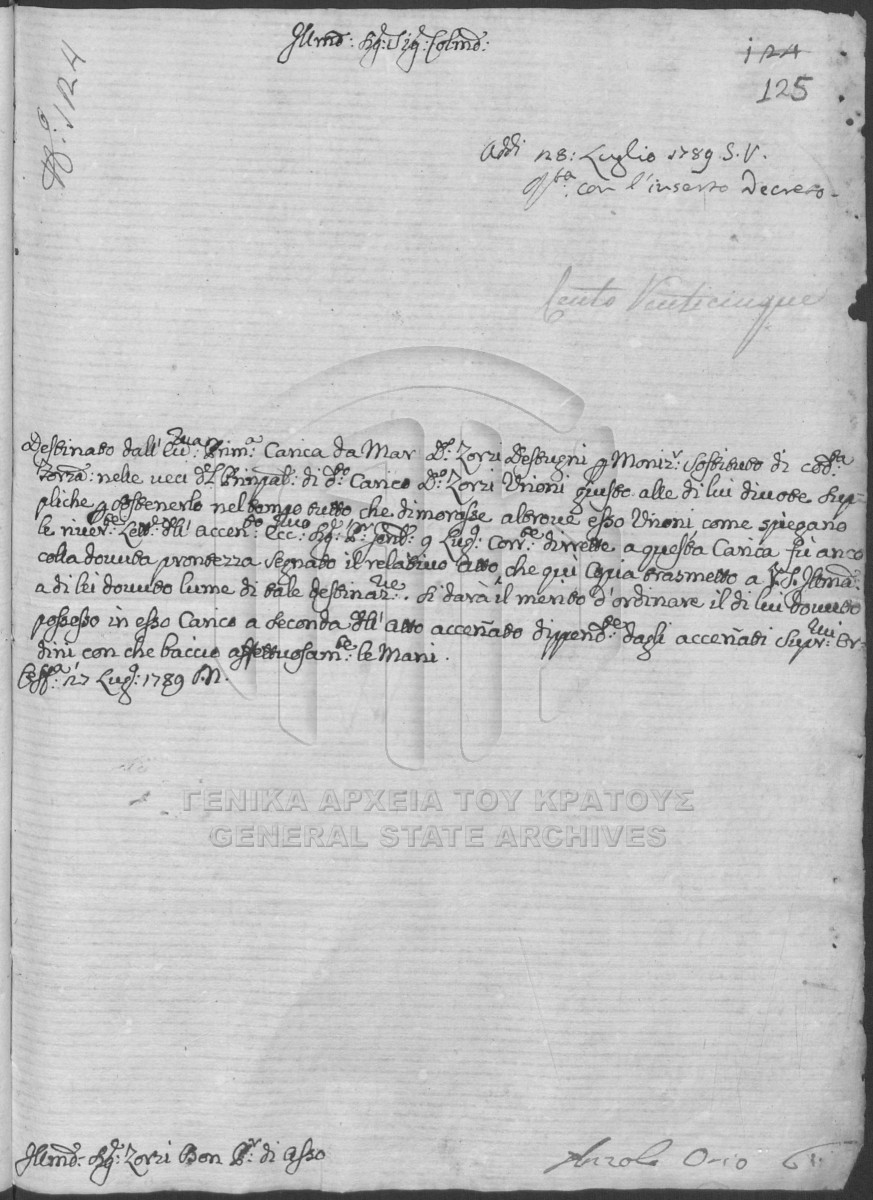 Illmo: Sigr: Sigr: Colmo:
124
125
No: 124
Addi 28: Luglio 1789 S.V.
con l'inserto Decreto.
Cento Venticinque
Destinato dall' Carica da Mar Dr. Zorzi Destugni q Moniz. Sostituto di codta.
Forza: nelle veci del Prinpal: di dto Carico Do Zorzi Unioni giusto alle di lui divote Sup-
pliche q ottenerlo nel tempo tutto che dimorasse altrove esso Unioni come spiegano
le river.te Lett.e dll' accen.to Ecc: 9 Lug: Corr.te dirrette a questa Carica fù an co
colla dovuta prontezza segnato il relativo Atto, che quì Copia trasmetto a V.S. Illma:
a di lei dovuto lume di tale destinazne. Si darà il merito d'ordinare il di lui dovuto
possesso in esso Carico a seconda dll' atto accennato dippend.te dagli accennati Or-
dini con che baccio affettuosam.te le Mani.
27 Lug: 1789 S.N.
ΓΕΝΙΚΑ ΑΡΧΕΙΑ ΤΟΥ ΚΡΑΤΟΥΣ
GENERAL STATE ARCHIVES
Illmo: Sigr: Zorzi Bon Pr: di Asso
Anzolo Orio